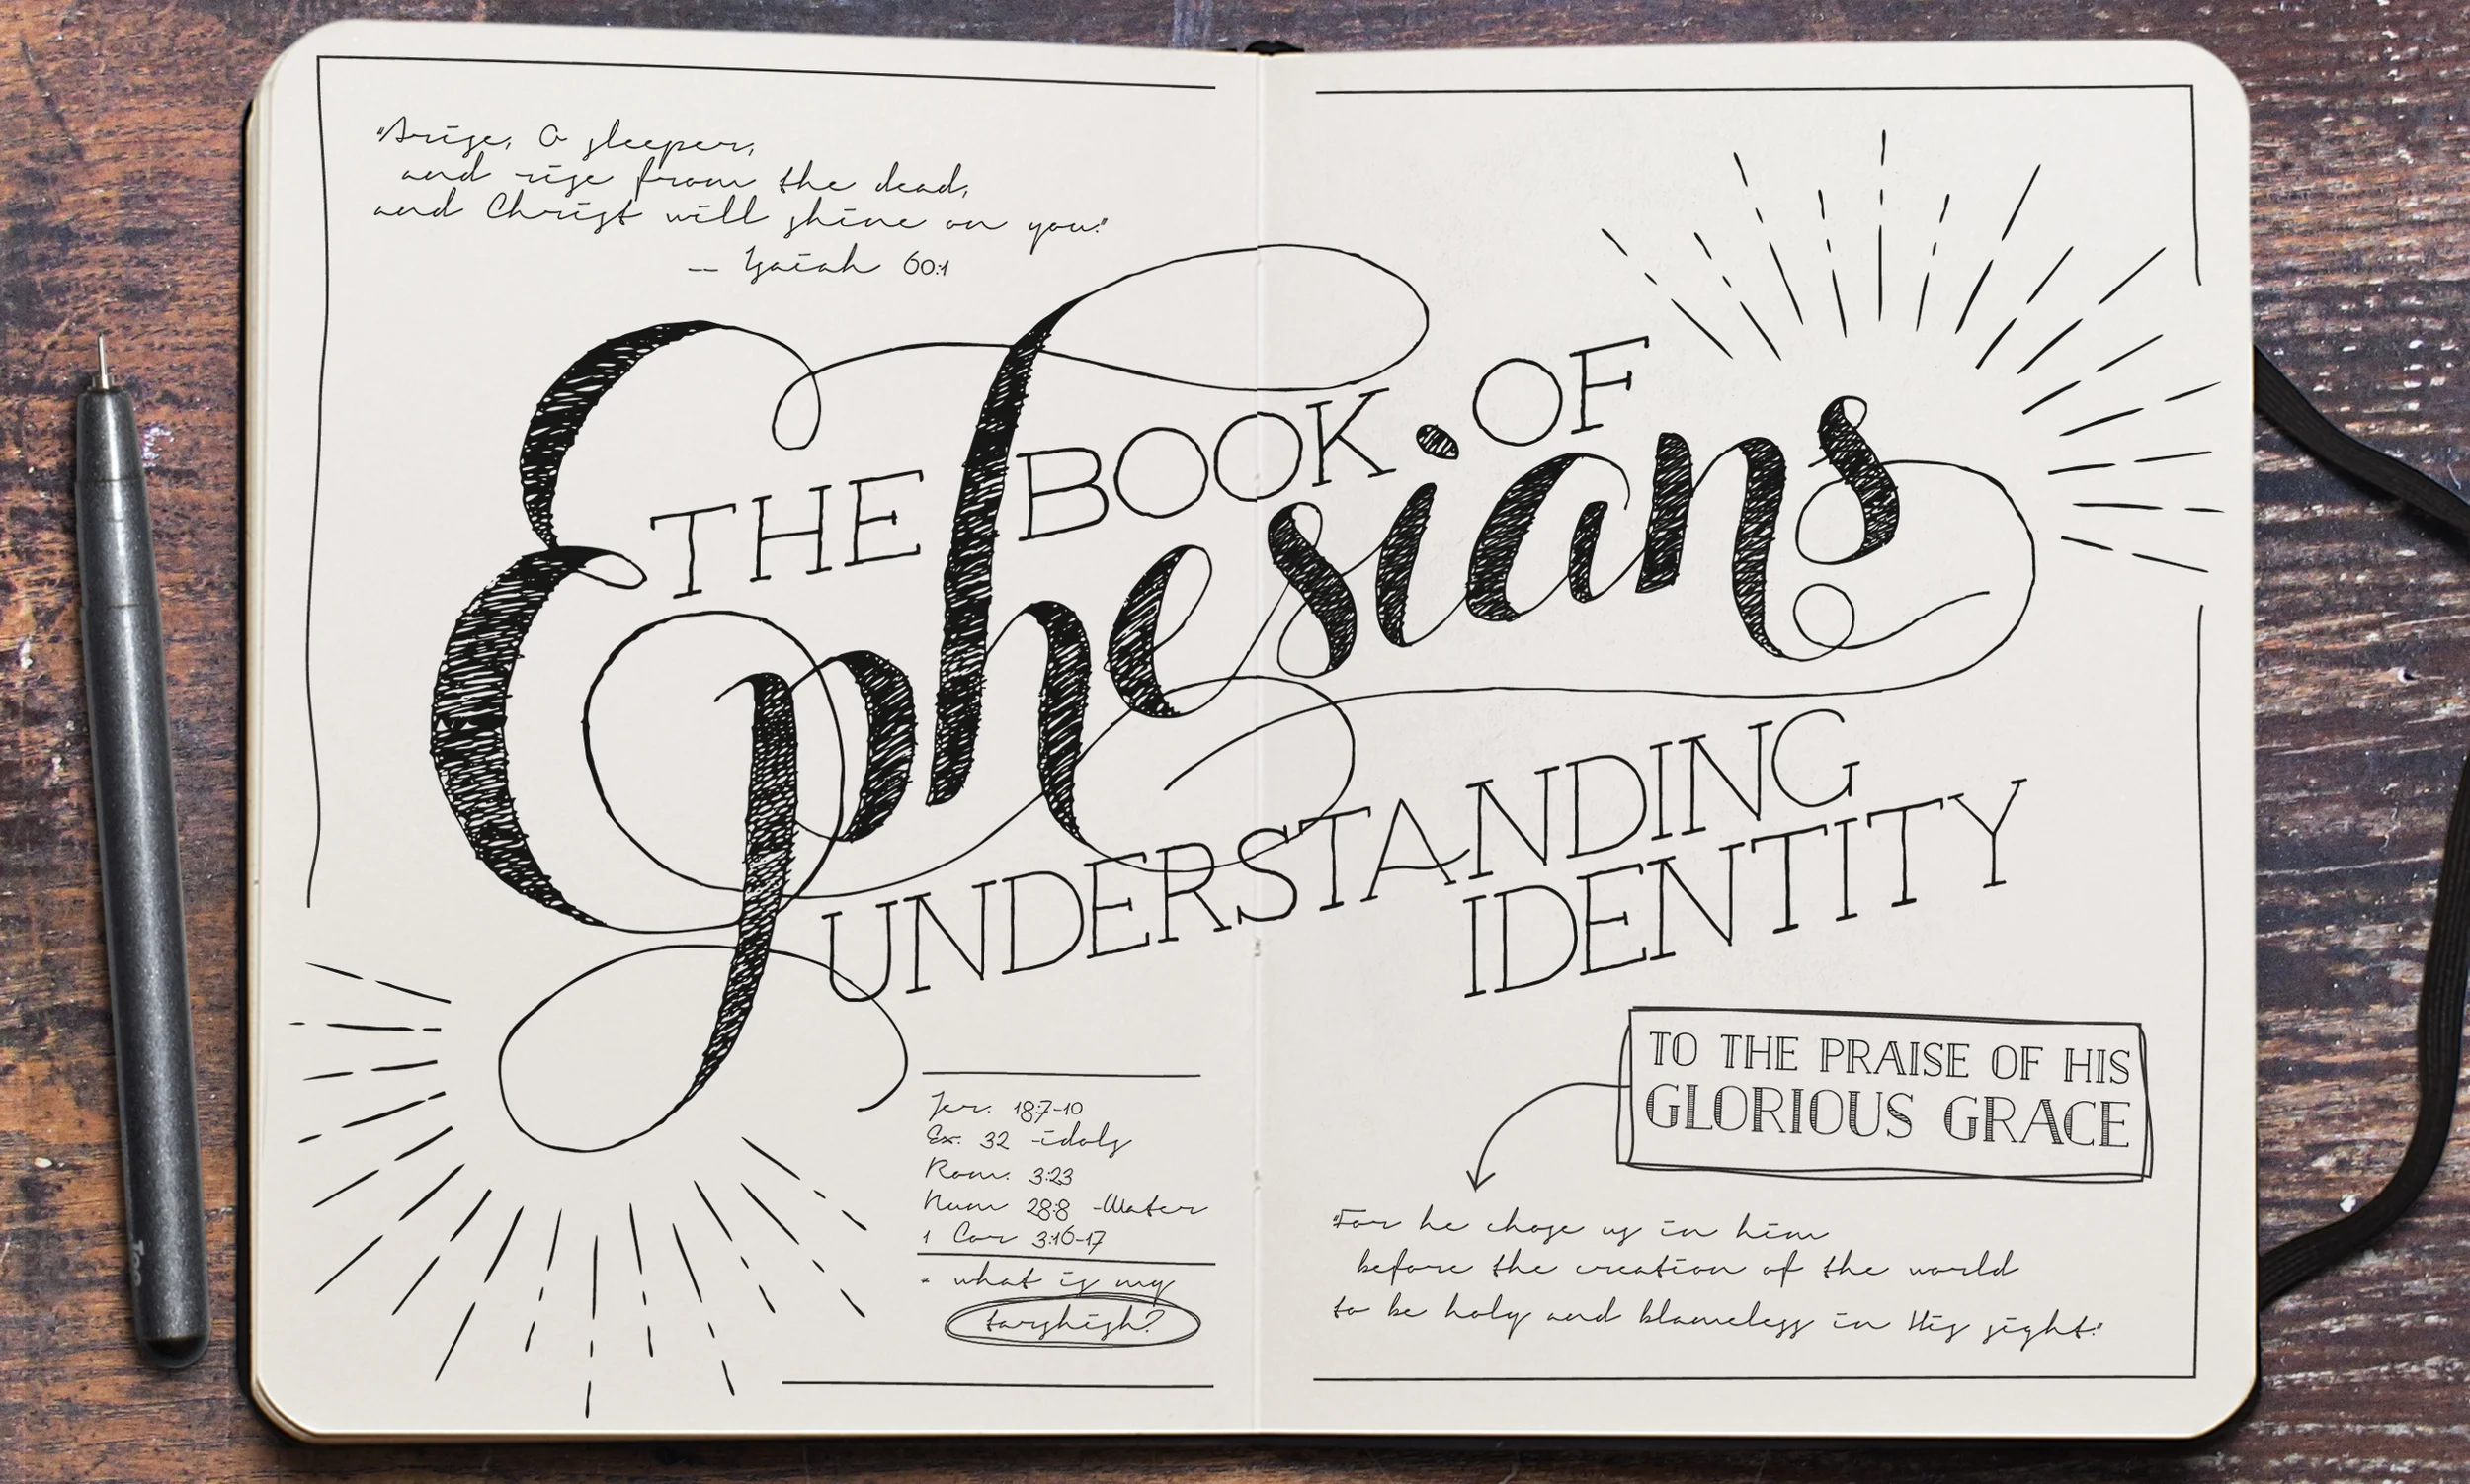 "Arise, O sleeper,
and rise from the dead,
and Christ will shine on you."
-- Isaiah 60:1
THE BOOK OF
Ephesians
UNDERSTANDING
IDENTITY
Jer. 18:7-10
Ex. 32 -idols
Rom. 3:23
Num 28:8 -Water
1 Cor 3:16-17
* what is my
tarshish?
TO THE PRAISE OF HIS
GLORIOUS GRACE
"For he chose us in him
before the creation of the world
to be holy and blameless in His sight."